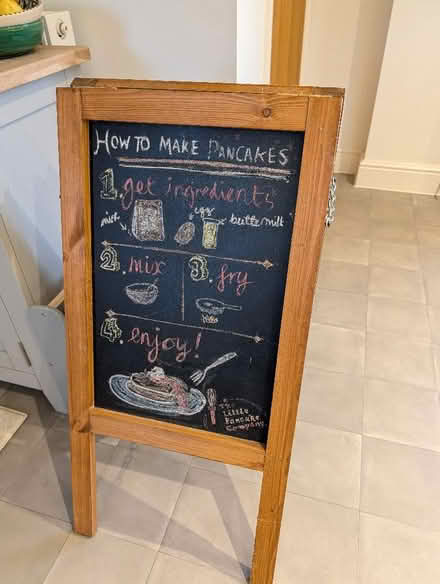 HOW TO MAKE PANCAKES
1. get ingredients
egg
buttermilk
2. mix
3. fry
4. enjoy!
The
Little
Pancake
Company